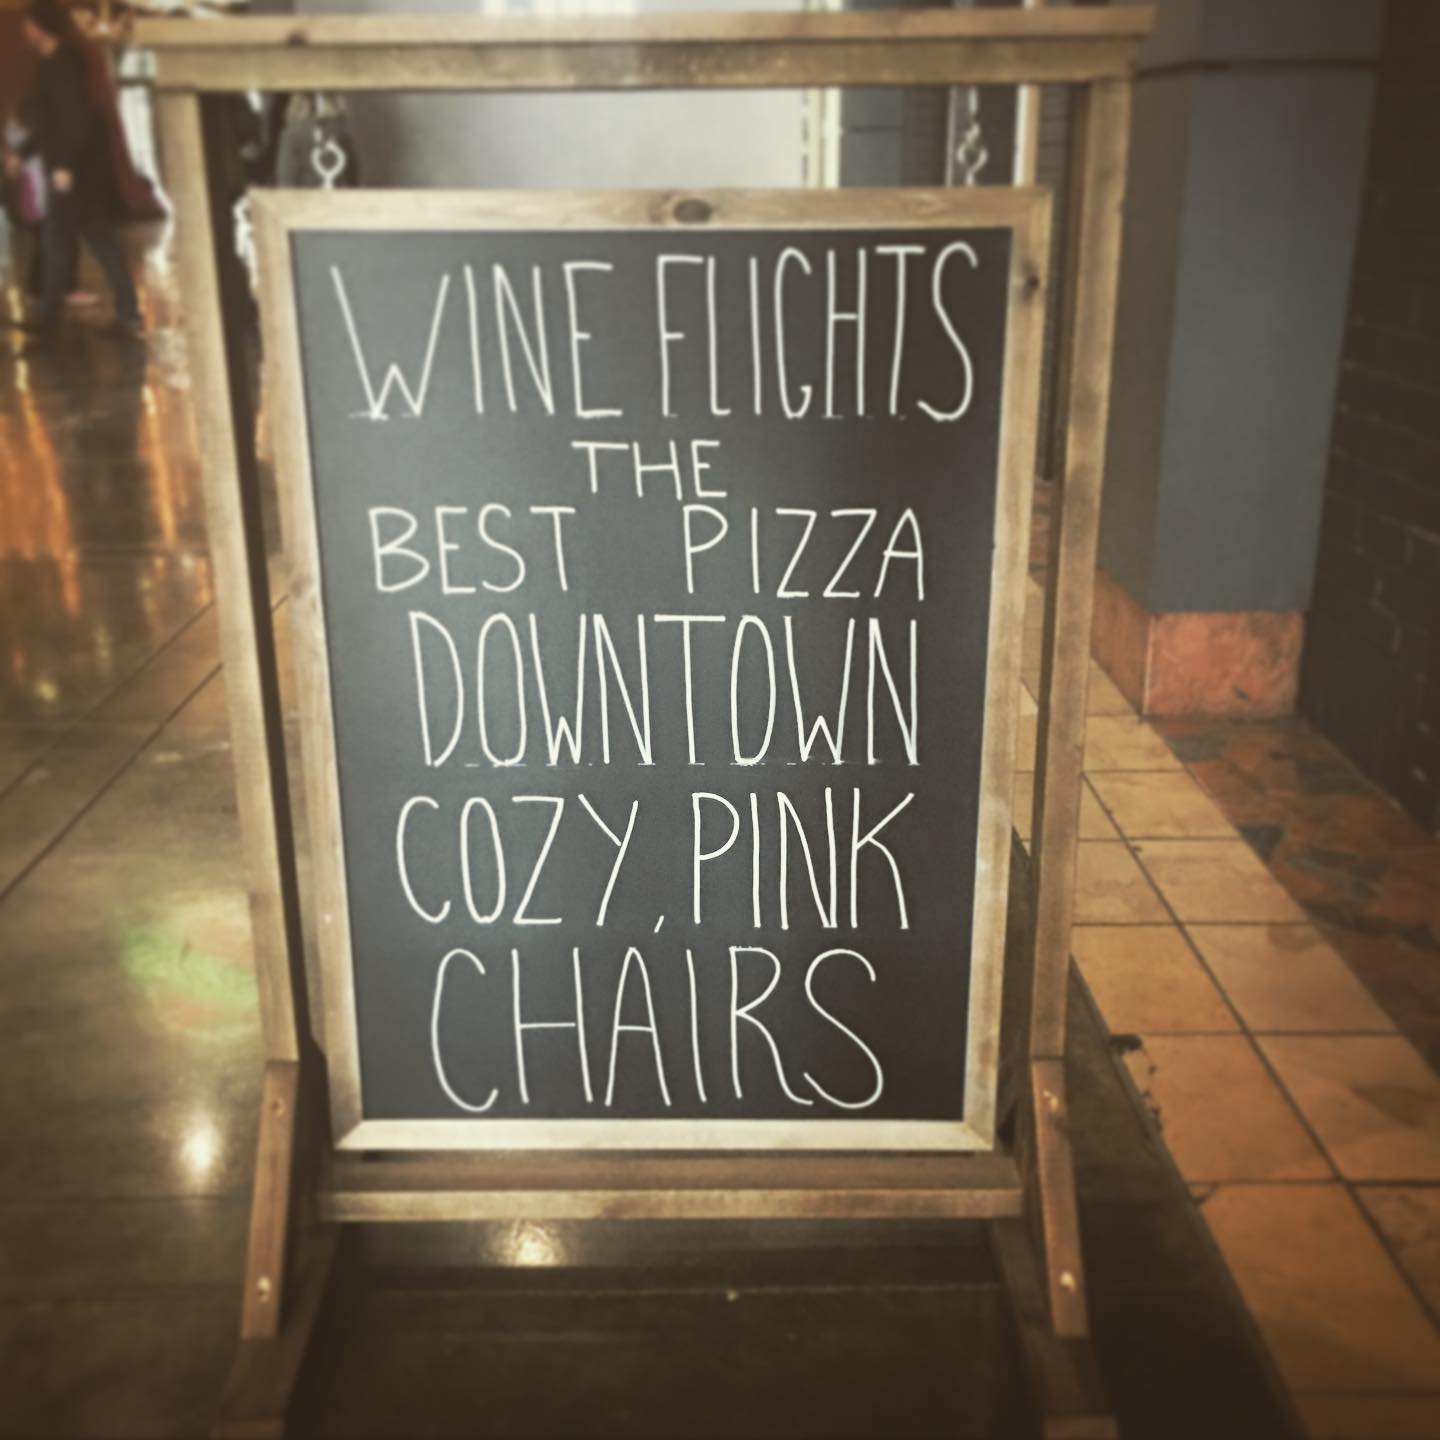 WINE FLIGHTS
THE
BEST PIZZA
DOWNTOWN
COZY, PINK
CHAIRS